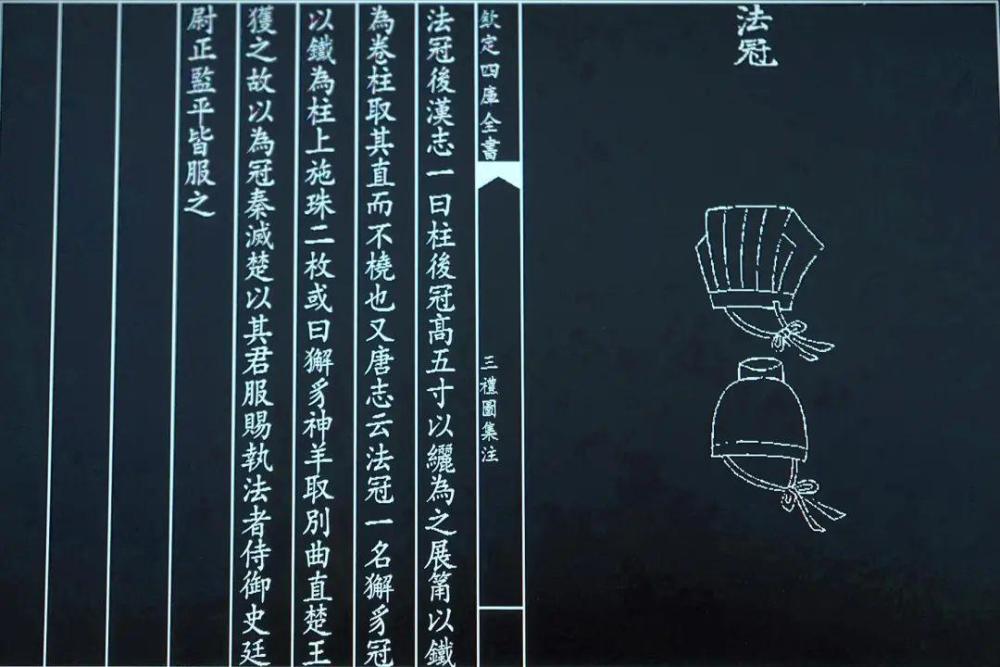 法冠
欽定四庫全書
三禮圖集注
法冠後漢志一曰柱後冠高五寸以纚為之展筩以鐵
為卷柱取其直而不橈也又唐志云法冠一名獬豸冠
以鐵為柱上施珠二枚或曰獬豸神羊取別曲直楚王
獲之故以為冠秦滅楚以其君服賜執法者侍御史廷
尉正監平皆服之